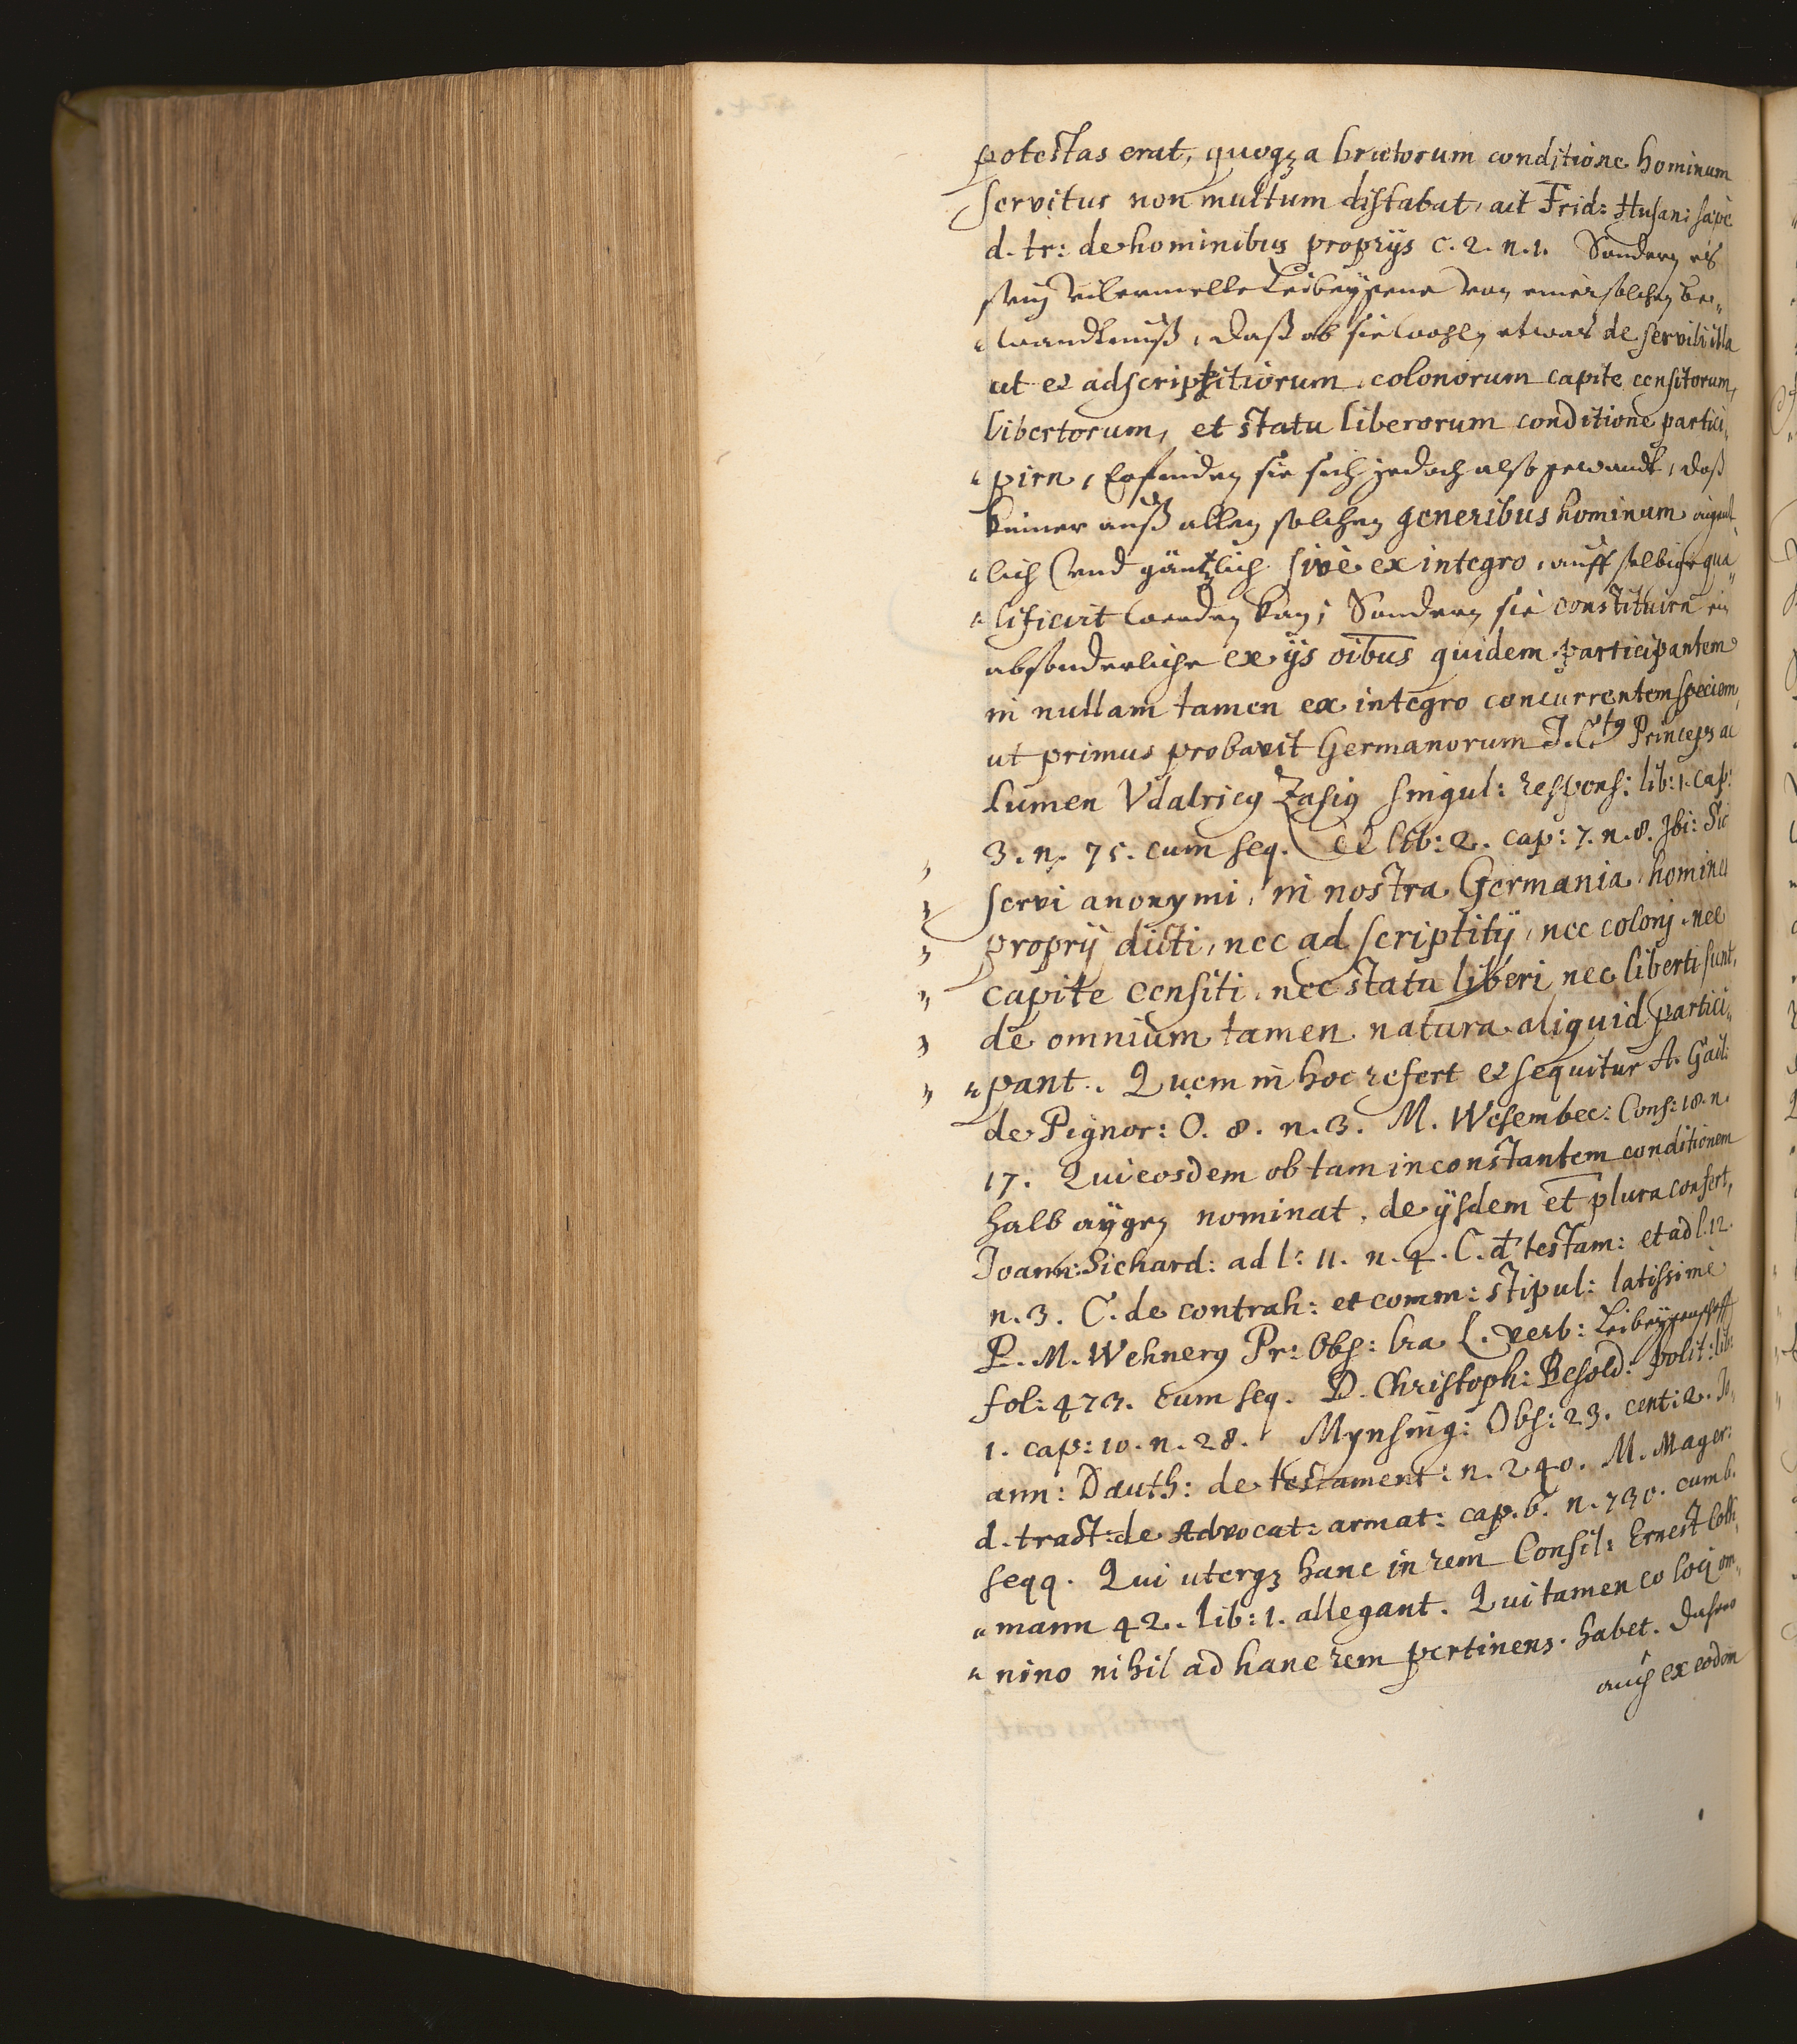 potestas erat, quoqꝫ a brutorum conditione hominum
servitus non multum distabat, ait Frid: Husan: saepe
d. tr: de hominibus proprijs c. 2. n. 1. Sondern es
seyn Leibeygene von einer solchen be„
„wandtnuß, daß ob sie wohln etwas de servili illa
ut et adscriptitiorum, colonorum capite censitorum,
libertorum, et statu liberorum conditione partici„
„pirn, befinden sie sich jedoch also gewandt, daß
keiner auß allen solchen generibus hominum eigent„
„lich vnd gäntzlich sive ex integro, auff selbige qua„
„lificirt werden kan; Sondern sie constituirn ein
absonderliche ex ijs oibus quidem participantem
in nullam tamen ex integro concurrentem speciem,
ut primus probavit Germanorum J. Ctꝰ Princeps ac
Lumen Vdalricꝰ Zasiꝰ singul: respons: lib: 1. cap:
3. n. 75. cum seq. et lib: 2. cap: 7. n. 8. Jbi: Sic
servi anonymi, in nostra Germania, homines
proprij dicti, nec adscriptitij, nec colonj, nec
capite censiti, nec statu liberi nec liberti sunt,
de omnium tamen natura aliquid partici„
„pant. Quem in hoc refert et sequitur A. Gail:
de Pignor: O. 8. n. 3. M. Wesembec: Cons: 18. n.
17. Qui eosdem ob tam inconstantem conditionem
halb aygen nominat, de ijsdem et plura confert,
Joann: Sichard: ad l: 11. n. 4. C. d testam: et ad l. 12.
n. 3. C. de contrah: et comm: stipul: latissimè
P. M. Wehnerꝰ Pr: Obs: lra L. verb: Leibeygenschafft
fol: 473. cum seq. D. Christoph: Besold: polit: lib:
1. cap: 10. n. 28. Mynsing: Obs: 23. cent: 2. Jo„
ann: Dauth: de testament: n. 240. M. Mager:
d. tract: de Advocat: armat: cap. 6. n. 730. cum b.
seqq. Qui uterqꝫ hanc in rem Consil: Ernest Coth„
„mann 42. lib: 1. allegant. Qui tamen eo locj om„
„nino nihil ad hanc rem pertinens habet. Dahero
auch ex eodem